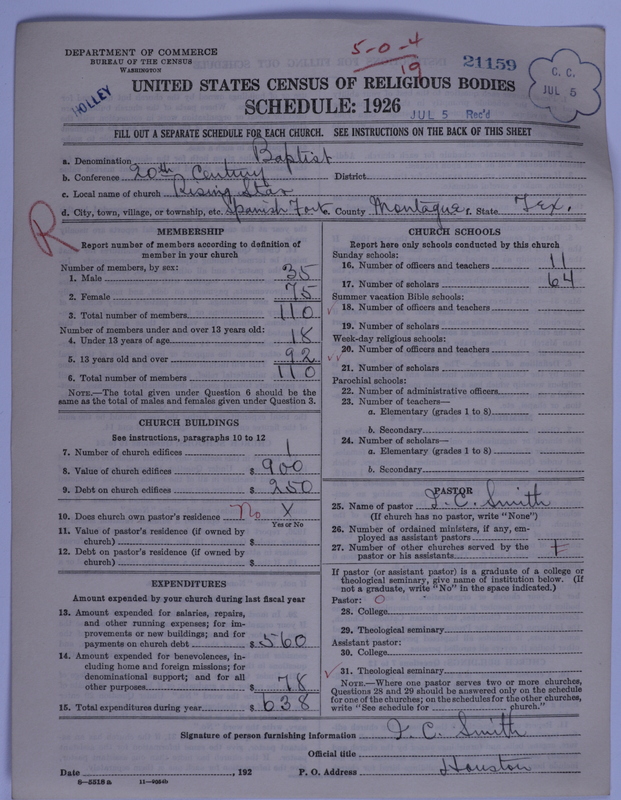 DEPARTMENT OF COMMERCE
BUREAU OF THE CENSUS
WASHINGTON
HOLLEY
5-0-4
19
21159
C. C.
JUL 5
UNITED STATES CENSUS OF RELIGIOUS BODIES
SCHEDULE: 1926
JUL 5 Rec'd
FILL OUT A SEPARATE SCHEDULE FOR EACH CHURCH. SEE INSTRUCTIONS ON THE BACK OF THIS SHEET
a. Denomination Baptist
b. Conference 20th Century District
c. Local name of church Rising Star
d. City, town, village, or township, etc. Spanish Fort e. County Montague f. State Tex.
R
MEMBERSHIP
Report number of members according to definition of
member in your church
Number of members, by sex:
1. Male 35
2. Female 75
3. Total number of members 110
Number of members under and over 13 years old:
4. Under 13 years of age 18
5. 13 years old and over 92
6. Total number of members 110
NOTE.—The total given under Question 6 should be the
same as the total of males and females given under Question 3.
CHURCH BUILDINGS
See instructions, paragraphs 10 to 12
7. Number of church edifices 1
8. Value of church edifices $ 900
9. Debt on church edifices $ 250
10. Does church own pastor's residence No X
Yes or No
11. Value of pastor's residence (if owned by
church) $
12. Debt on pastor's residence (if owned by
church) $
EXPENDITURES
Amount expended by your church during last fiscal year
13. Amount expended for salaries, repairs,
and other running expenses; for im-
provements or new buildings; and for
payments on church debt $ 560
14. Amount expended for benevolences, in-
cluding home and foreign missions; for
denominational support; and for all
other purposes 78
15. Total expenditures during year $ 638
CHURCH SCHOOLS
Report here only schools conducted by this church
Sunday schools:
16. Number of officers and teachers 11
17. Number of scholars 64
Summer vacation Bible schools:
18. Number of officers and teachers
19. Number of scholars
Week-day religious schools:
20. Number of officers and teachers
21. Number of scholars
Parochial schools:
22. Number of administrative officers
23. Number of teachers—
a. Elementary (grades 1 to 8)
b. Secondary
24. Number of scholars—
a. Elementary (grades 1 to 8)
b. Secondary
PASTOR
25. Name of pastor J. C. Smith
(If church has no pastor, write "None")
26. Number of ordained ministers, if any, em-
ployed as assistant pastors
27. Number of other churches served by the
pastor or his assistants
If pastor (or assistant pastor) is a graduate of a college or
theological seminary, give name of institution below. (If
not a graduate, write "No" in the space indicated.)
Pastor: 0
28. College
29. Theological seminary
Assistant pastor:
30. College
31. Theological seminary
NOTE.—Where one pastor serves two or more churches,
Questions 28 and 29 should be answered only on the schedule
for one of the churches; on the schedules for the other churches,
write "See schedule for church."
Signature of person furnishing information J. C. Smith
Official title
Date , 192 P. O. Address Houston
8-5518 a